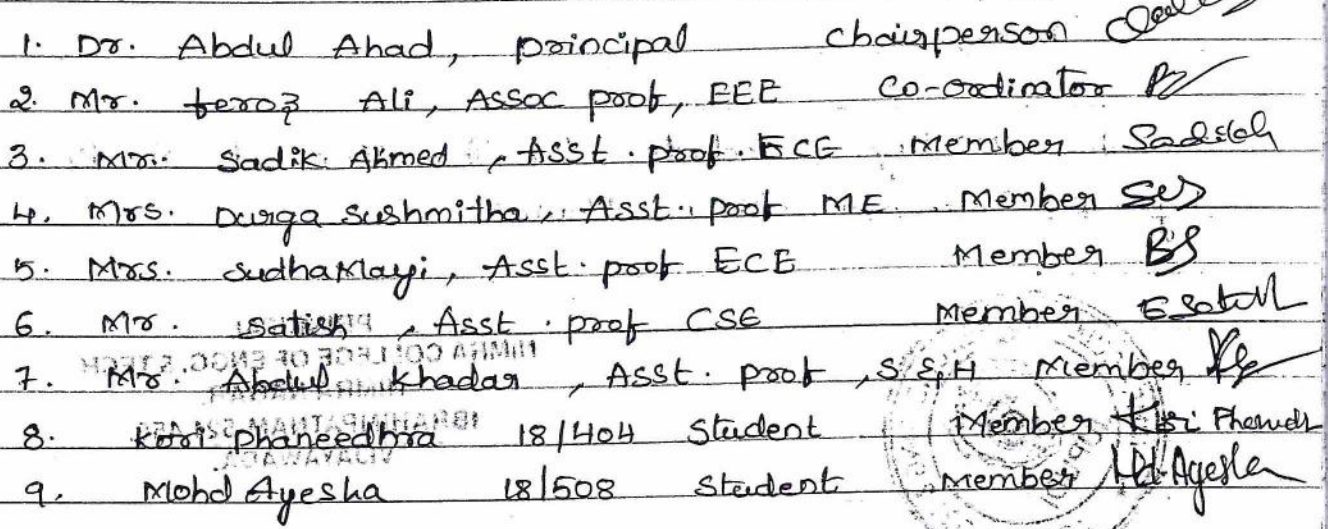 1. Dr. Abdul Ahad, principal chairperson
2. Mr. feroz Ali, Assoc prof, EEE Co-ordinator
3. Mr. Sadik Ahmed, Asst. prof. ECE Member Sadik
4. Mrs. Durga Sushmitha, Asst. prof ME Member
5. Mrs. SudhaMayi, Asst. prof ECE Member BS
6. Mr. Satish, Asst. prof CSE Member E Satish
NIMRA COLLEGE OF ENGG. & TECH
7. Mr. Abdul Khadar, Asst. prof, S&H Member
IBRAHIMPATNAM
8. Kori Phaneedhra 18/404 Student Member Kori
VIJAYAWADA
9. Mohd Ayesha 18/508 Student Member Md. Ayesha